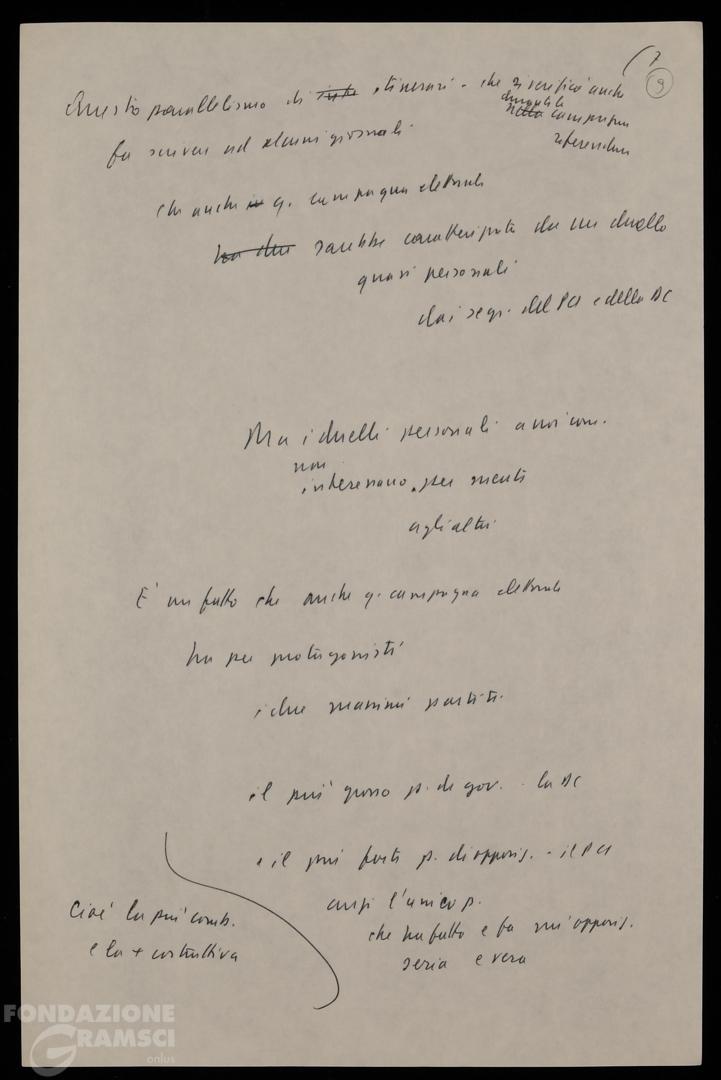 (7
9
Questo parallelismo di itinerari - che si verificò anche
durante la
nella campagna
referendum
fa scrivere ad alcuni giornali
che anche in q. campagna elettorale
ha due sarebbe caratterizzata da un duello
quasi personale
dai segr. del PCI e della DC
Ma i duelli personali a noi com.
non
interessano, per niente
agli altri
E' un fatto che anche q. campagna elettorale
ha per protagonisti
i due massimi partiti.
il più grosso p. di gov. - la DC
e il più forte p. di opposiz. - il PCI
anzi l'unico p.
che ha fatto e fa un'opposiz.
seria e vera
Cioè la più comb.
e la + costruttiva
FONDAZIONE
GRAMSCI
onlus